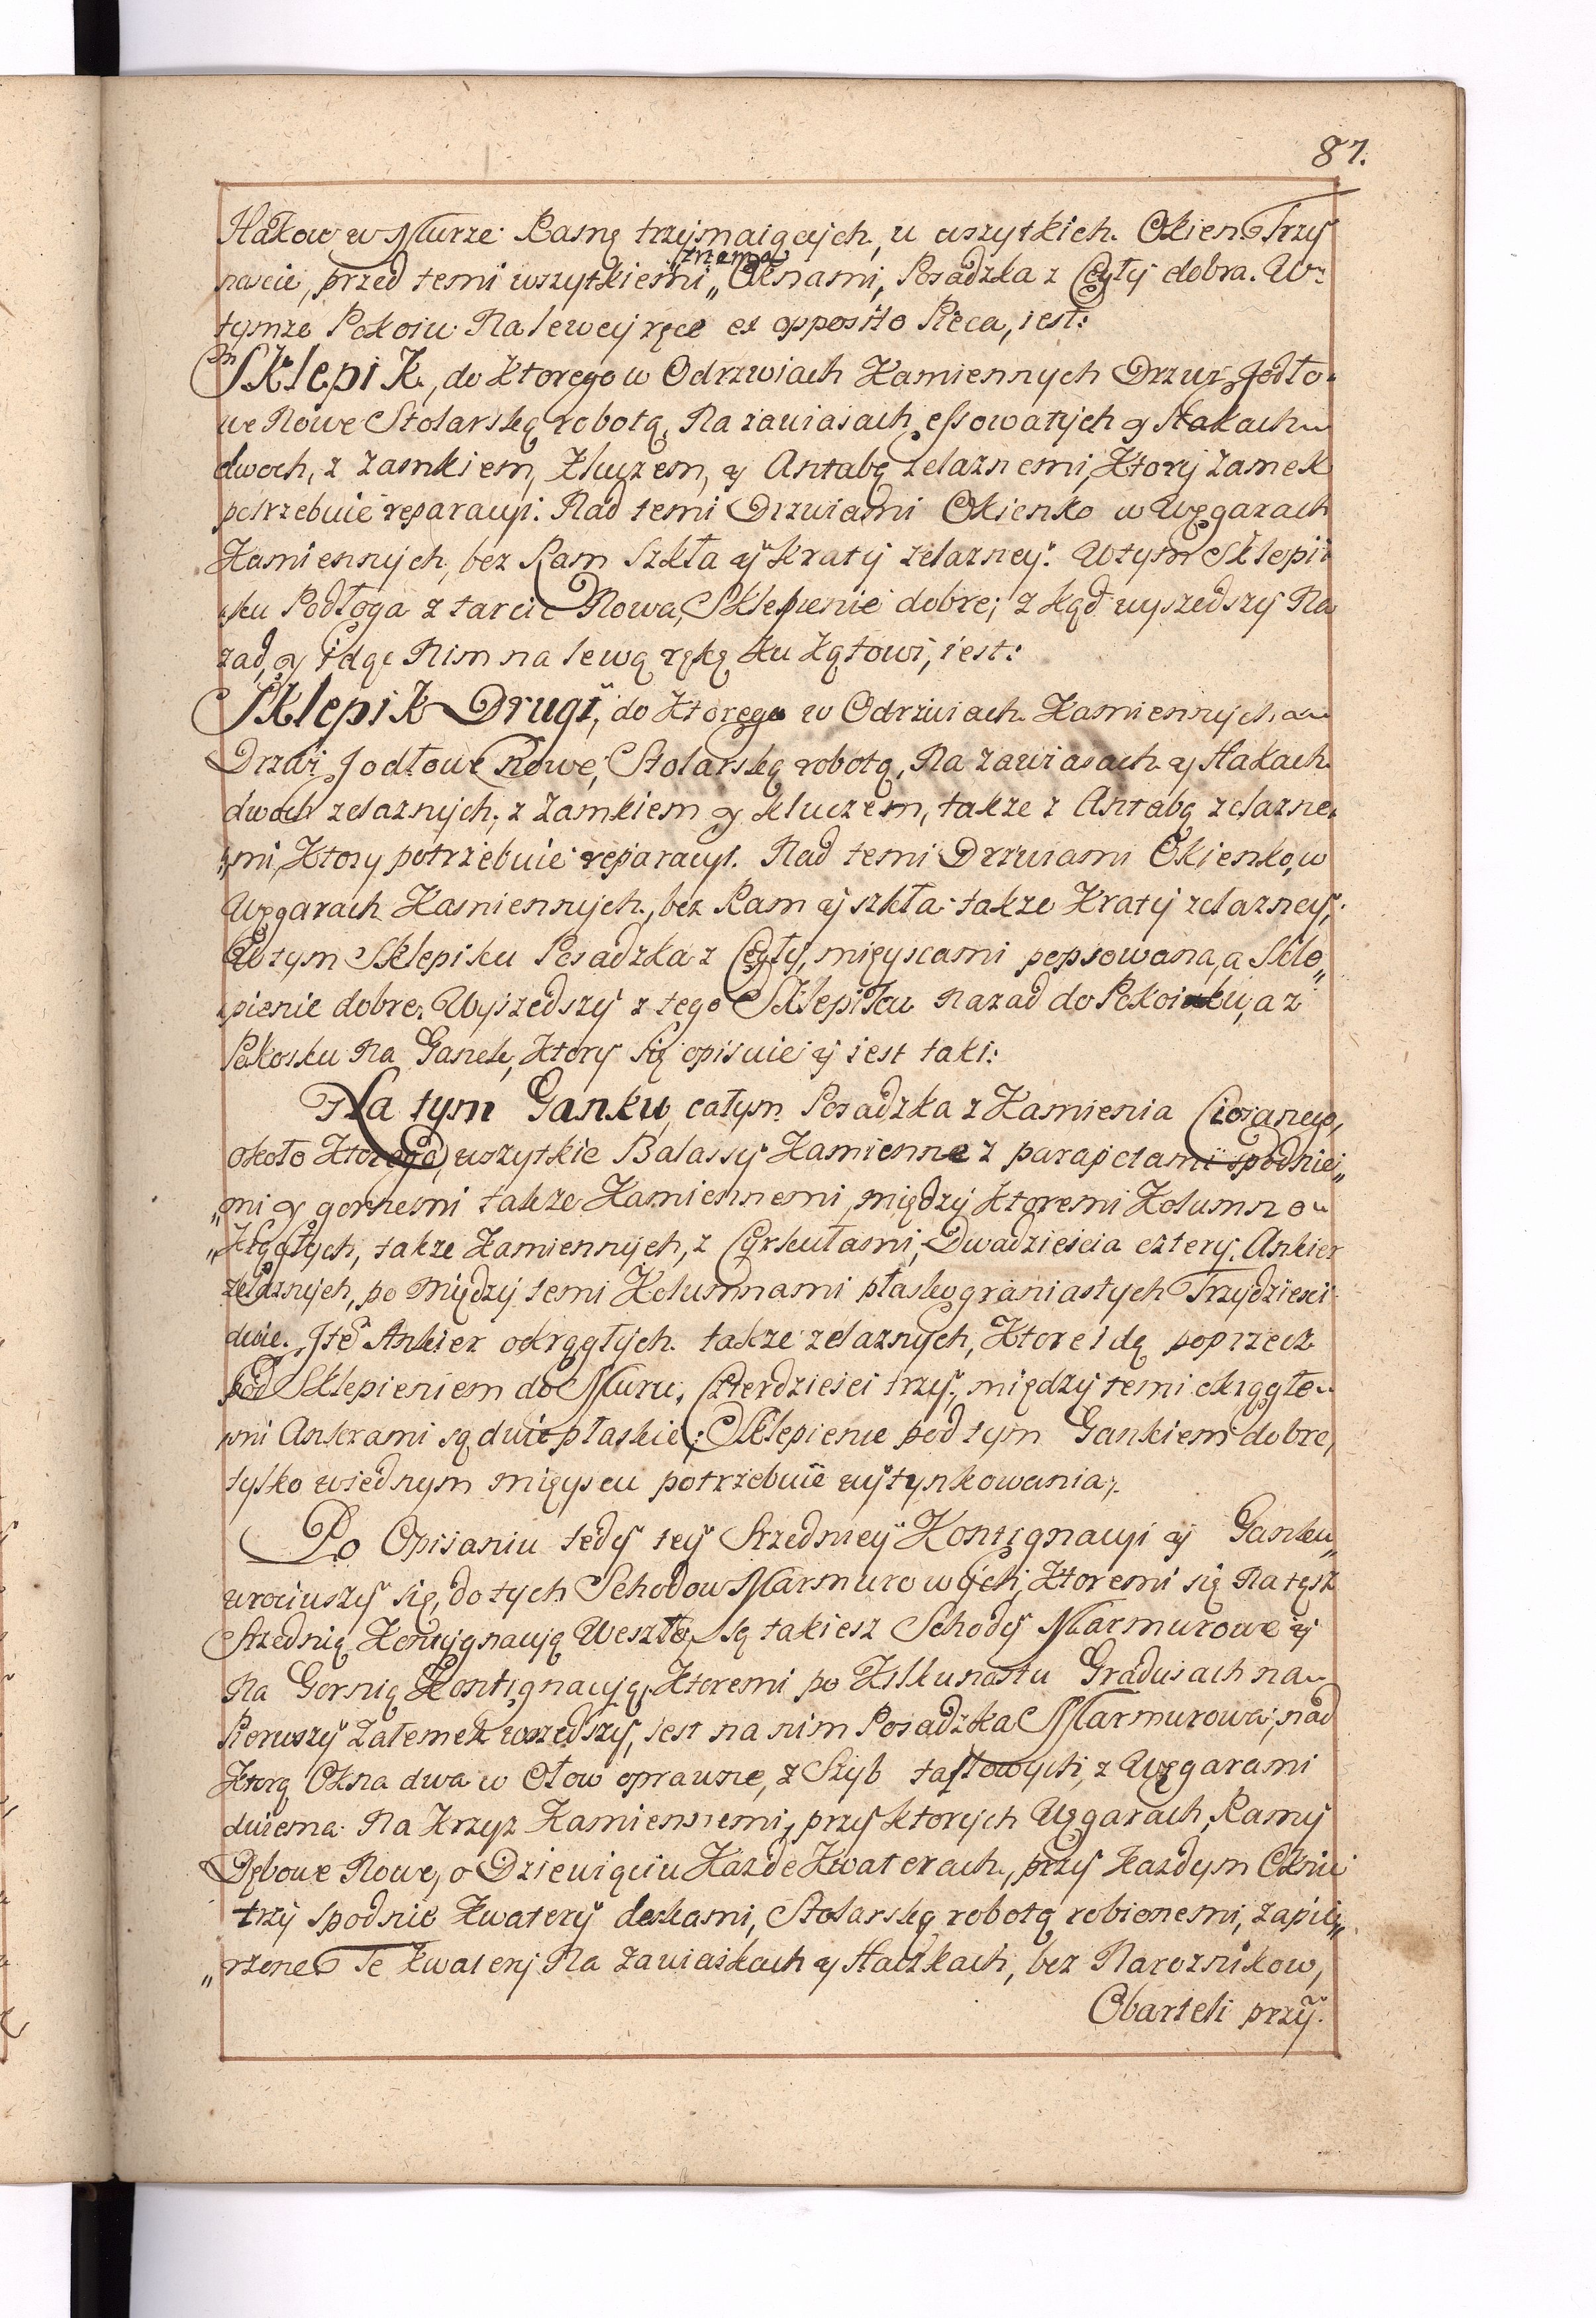 87.
Hakow w Murze Ramę trzymaiących, u wszytkich Okien Trzy
nascie, przed temi wszytkiemi „trzema Oknami, Posadzka z Cegły dobra. W
tymze Pokoiu Na lewey ręce ex opposito Pieca, iest:
Sklepik, do ktorego w Odrzwiach Kamiennych Drzwi Jodło„
we Nowe Stolarską robotą, Na zawiasach essowatych y Hakach
dwoch, z zamkiem, kluczem, y Antabą zelaznemi, Ktory zamek
potrzebuie reparacyi. Nad temi Drzwiami Okienko w Węgarach
Kamiennych, bez Ram Szkła y kraty zelazney. W tym Sklepi„
„ku Podłoga z tarcic Nowa, Sklepienie dobre; z kąd wyszedszy Na
zad, y idąc Nim na lewą rękę ku kątowi, iest:
Sklepik Drugi, do Ktorego w Odrzwiach Kamiennych
Drzwi Jodłowe Nowe, Stolarską robotą, Na zawiasach y Hakach
dwoch zelaznych, z zamkiem y kluczem, takze z Antabą zelazne„
„mi, Ktory potrzebuie reparacyi. Nad temi Drzwiami Okienko, w
Węgarach Kamiennych, bez Ram y szkła takze Kraty zelazney,
W tym Sklepiku Posadzka z Cegły, mieyscami popsowana, a Skle„
pienie dobre. Wyszedszy z tego Sklepiku nazad do Pokoiku, a z
Pokoiku Na Ganek, Ktory się opisuie y iest taki:
Na tym Ganku, całym Posadzka z Kamienia Ciosanego,
około Ktorego, wszytkie Balassy Kamienne z parapetami spodnie„
„mi y gornemi takze Kamiennemi, między ktoremi Kolumn o„
„Krągłych, takze Kamiennych, z Cyrkułami, Dwadziescia cztery. Ankier
zelaznych, po między temi Kolumnami płaskograniastych Trzydziesci
dwie. Ite Ankier okrągłych takze zelaznych, Ktore idą poprzecz
pod Sklepieniem do Muru, Czterdziesci trzy, między temi okrągłe„
„mi Ankrami są dwie płaskie; Sklepienie pod tym Gankiem dobre,
tylko w iednym mieyscu potrzebuie wytynkowania;
Po Opisaniu tedy tey Srzedniey Kontignacyi y Ganku„
wrociwszy się, do tych Schodow Marmurowych, Ktoremi się Na tęsz
Srzednią Kontygnacyą Weszło, są takiesz Schody Marmurowe y
Na Gornią Kontignacyą, Ktoremi po Kilkunastu Gradusach na
Pierwszy załomek wszedszy, iest na nim Posadzka Marmurowa, nad
Ktorą Okna dwa w Ołow oprawne, z Szyb taflowych, z Węgarami
dwiema Na Krzyz Kamiennemi, przy ktorych Węgarach, Ramy
Dębowe Nowe, o Dziewiąciu Kazde Kwaterach, przy kazdym Oknie
trzy spodnie kwatery deskami, Stolarską robotą robionemi, zapie„
„rzone. Te kwatery Na zawiaskach y Haczkach, bez Naroznikow,
Obarteli przy.